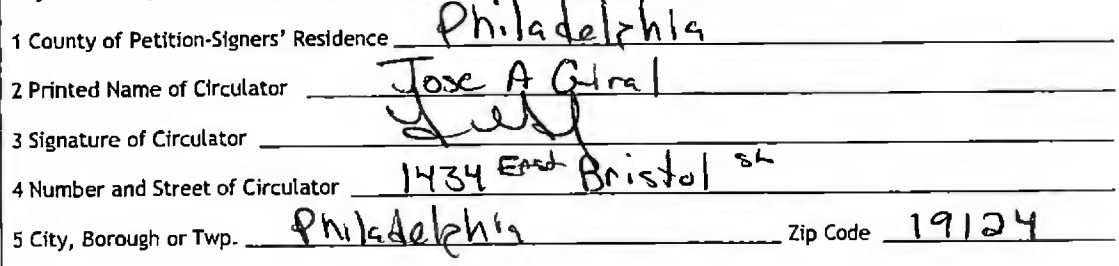 1 County of Petition-Signers' Residence Philadelphia
2 Printed Name of Circulator Jose A Giral
3 Signature of Circulator
4 Number and Street of Circulator 1434 East Bristol st
5 City, Borough or Twp. Philadelphia Zip Code 19124